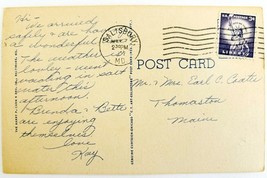 Hi -
We arrived
safely & are having
a wonderful time
The weather is
lovely - went
wading in salt
water this
afternoon.
Brenda & Bette
are enjoying
themselves
Love
Kay
SALISBURY
MD.
POST CARD
Mr. & Mrs. Earl C. Coates
Thomaston
Maine